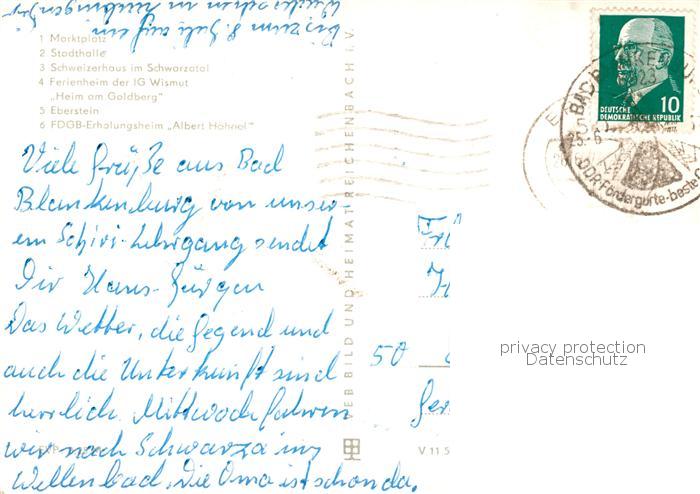 bis zum 8. Juli auf ein
Wiedersehen in
1 Marktplatz
2 Stadthalle
3 Schweizerhaus im Schwarzatal
4 Ferienheim der IG Wismut
„Heim am Goldberg“
5 Eberstein
6 FDGB-Erholungsheim „Albert Höhnel“
Viele Grüße aus Bad
Blankenburg von unser-
em Schiri-Lehrgang sendet
Dir Hans-Jürgen
Das Wetter, die Gegend und
auch die Unterkunft sind
herrlich. Mittwoch fahren
wir nach Schwarza ins
Wellenbad. Die Oma ist schon da.
VEB BILD UND HEIMAT REICHENBACH I. V.
V 11 5
50
Ger
DEUTSCHE
DEMOKRATISCHE REPUBLIK
10
6823
DDR-Fördergurte-beste
privacy protection
Datenschutz